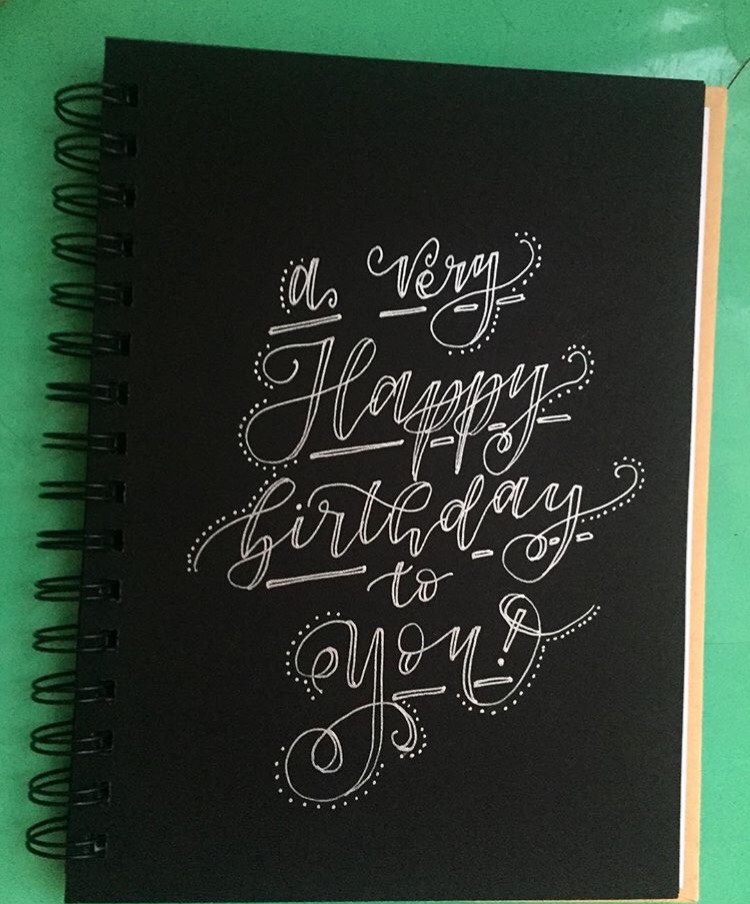 a very
Happy
birthday
to
you!